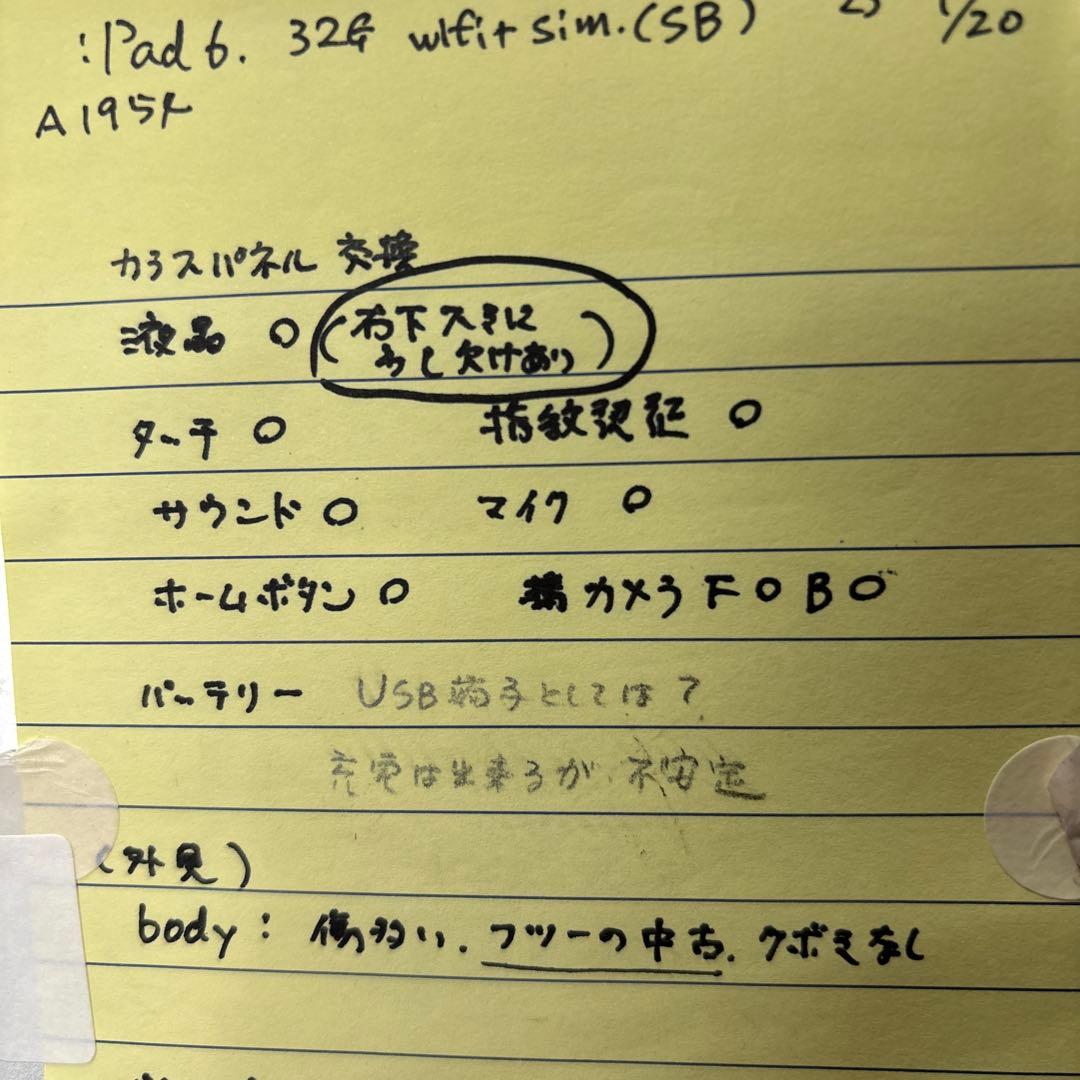 iPad 6. 32G wifi+sim.(SB) 1/20
A1954
ガラスパネル 交換
液晶 ○ (右下スミに
少し欠けあり)
タッチ ○ 指紋認証 ○
サウンド ○ マイク ○
ホームボタン ○ カメラ F ○ B ○
バッテリー USB端子としては?
充電は出来るが 不安定
(外見)
body: 傷多い. フツーの中古. クボミなし